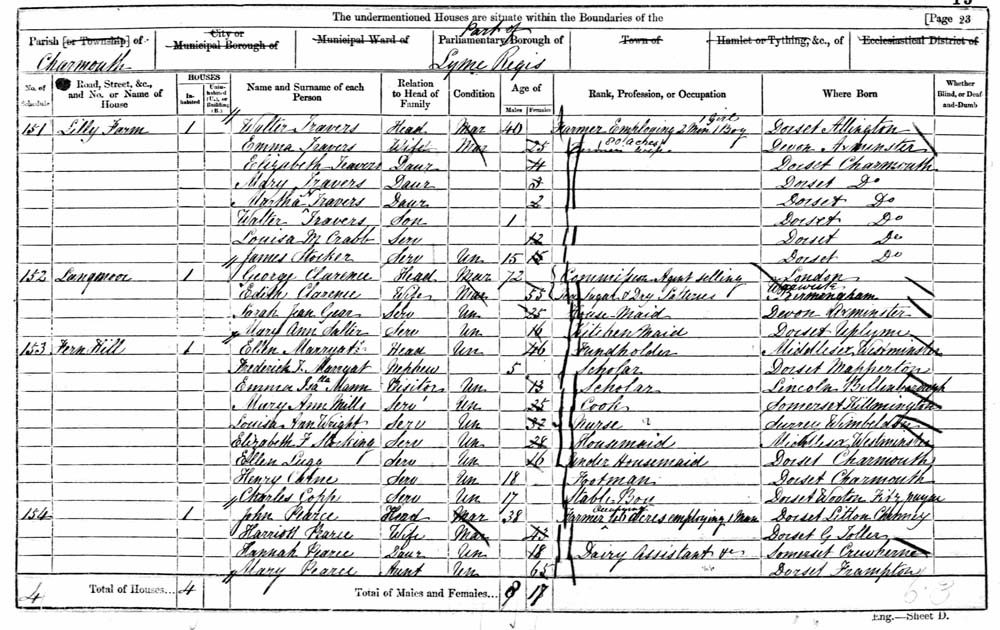 The undermentioned Houses are situate within the Boundaries of the [Page 23
Parish [or Township] of Charmouth
City or Municipal Borough of
Municipal Ward of
Part of Parliamentary Borough of Lyme Regis
Town of
Hamlet or Tything, &c., of
Ecclesiastical District of
No. of Schedule Road, Street, &c., and No. or Name of House HOUSES Inhabited Uninhabited (U.), or Building (B.) Name and Surname of each Person Relation to Head of Family Condition Age of Males Females Rank, Profession, or Occupation Where Born Whether Blind, or Deaf-and-Dumb
151 Lilly Farm 1 Walter Travers Head Mar 40 Farmer Employing 2 Men 1 Boy 1 Girl Dorset Allington
Emma Travers Wife Mar 25 80 acres Devon Axminster
Elizabeth Travers Daur 4 Dorset Charmouth
Mary Travers Daur 3 Dorset Do
Martha Travers Daur 2 Dorset Do
Walter Travers Son 1 Dorset Do
Louisa M Crabb Serv 12 Dorset Do
James Stocker Serv Un 15 Dorset Do
152 Langmoor 1 George Clarence Head Mar 72 Agent selling London
Edith Clarence Wife Mar 55 Sugar & Dry Warwick Birmingham
Norah Jean Gear Serv Un 25 House Maid Devon Axminster
Mary Ann Salter Serv Un 16 Kitchen Maid Dorset Uplyme
153 Fern Hill 1 Ellen Marryat Head Un 46 Fundholder Middlesex Westminster
Frederick F. Marryat Nephew 5 Scholar Dorset Mapperton
Emma Isalla Mann Visitor Un 13 Scholar Lincoln
Mary Ann Mills Serv Un 25 Cook Somerset Kilmington
Louisa Ann Wright Serv Un 32 Nurse Surrey Wimbledon
Elizabeth F Stocking Serv Un 28 Housemaid Middlesex Westminster
Ellen Lugg Serv Un 16 Under Housemaid Dorset Charmouth
Henry Serv Un 18 Footman Dorset Charmouth
Charles Copp Serv Un 17 Stable Boy Dorset Wooton Fitzpaine
154 1 John Pearce Head Mar 38 Farmer Occupying acres employing 1 Man Dorset Litton Cheney
Harriott Pearce Wife Mar 47 Dorset G Toller
Hannah Pearce Daur Un 18 Dairy Assistant &c Somerset Crewkerne
Mary Pearce Aunt Un 65 Dorset Frampton
4 Total of Houses... 4 Total of Males and Females... 8 17
Eng.—Sheet D.